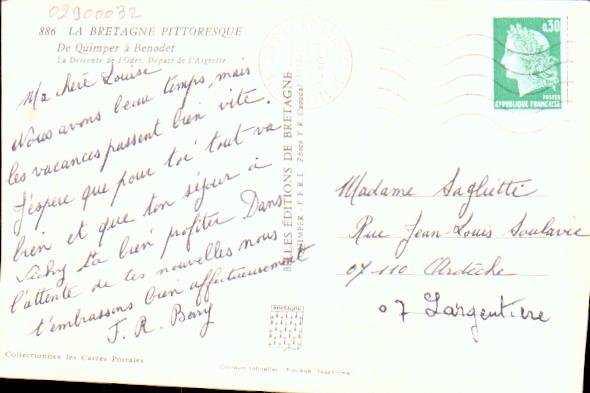 02900032
886 LA BRETAGNE PITTORESQUE
De Quimper à Benodet
La Descente de l'Odet, Départ de l'Aigrette
Ma chère Louise
Nous avons beau temps, mais
les vacances passent bien vite.
J'espère que pour toi tout va
bien et que ton séjour à
Vichy t'a bien profiter. Dans
l'attente de tes nouvelles nous
t'embrassons bien affectueusement
F. R. Berry
Collectionnez les Cartes Postales
BELLES ÉDITIONS DE BRETAGNE
QUIMPER
Photo Y. R.
BRETAGNE
Couleurs naturelles
0,30
POSTES
RÉPUBLIQUE FRANÇAISE
Madame Sagliette
Rue Jean-Louis Soulavie
07110 Ardèche
07 Largentière